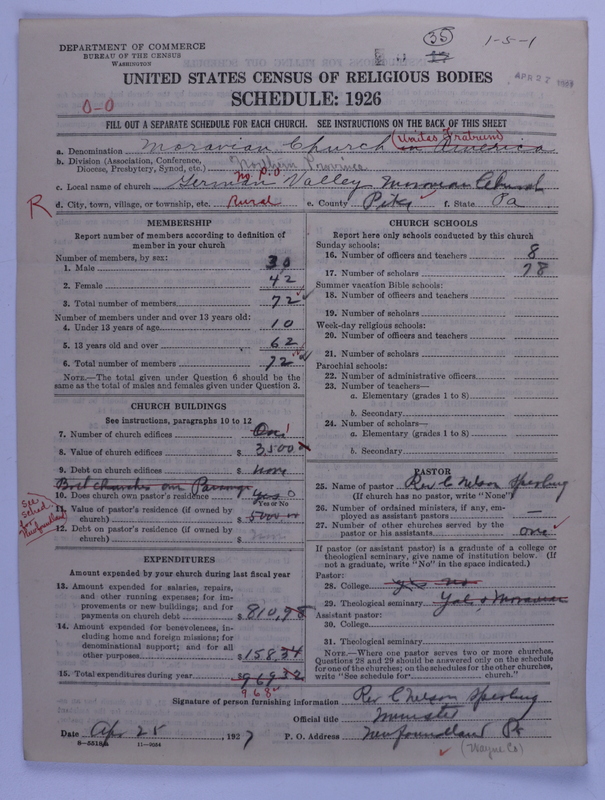 DEPARTMENT OF COMMERCE
BUREAU OF THE CENSUS
WASHINGTON
35
1-5-1
APR 27
UNITED STATES CENSUS OF RELIGIOUS BODIES
SCHEDULE: 1926
0-0
FILL OUT A SEPARATE SCHEDULE FOR EACH CHURCH. SEE INSTRUCTIONS ON THE BACK OF THIS SHEET
(Unitas Fratrum)
a. Denomination Moravian Church in America
b. Division (Association, Conference,
Diocese, Presbytery, Synod, etc.) Northern Province
No P.O
c. Local name of church German Valley Moravian Church
R
d. City, town, village, or township, etc. Rural e. County Pike f. State Pa
MEMBERSHIP
Report number of members according to definition of
member in your church
Number of members, by sex:
1. Male 30
2. Female 42
3. Total number of members 72
Number of members under and over 13 years old:
4. Under 13 years of age 10
5. 13 years old and over 62
6. Total number of members 72
NOTE.—The total given under Question 6 should be the
same as the total of males and females given under Question 3.
CHURCH BUILDINGS
See instructions, paragraphs 10 to 12
7. Number of church edifices One 1
8. Value of church edifices $ 3500
9. Debt on church edifices $ none
Both churches own Parsonage
10. Does church own pastor's residence yes 0
Yes or No
see sched. for Newfoundland
11. Value of pastor's residence (if owned by
church) $ 5000
12. Debt on pastor's residence (if owned by
church) $
EXPENDITURES
Amount expended by your church during last fiscal year
13. Amount expended for salaries, repairs,
and other running expenses; for im-
provements or new buildings; and for
payments on church debt $ 810,98
14. Amount expended for benevolences, in-
cluding home and foreign missions; for
denominational support; and for all
other purposes $ 158,34
15. Total expenditures during year 969.32
968
CHURCH SCHOOLS
Report here only schools conducted by this church
Sunday schools:
16. Number of officers and teachers 8
17. Number of scholars 78
Summer vacation Bible schools:
18. Number of officers and teachers
19. Number of scholars
Week-day religious schools:
20. Number of officers and teachers
21. Number of scholars
Parochial schools:
22. Number of administrative officers
23. Number of teachers—
a. Elementary (grades 1 to 8)
b. Secondary
24. Number of scholars—
a. Elementary (grades 1 to 8)
b. Secondary
PASTOR
25. Name of pastor Rev C Nelson Sperling
(If church has no pastor, write "None")
26. Number of ordained ministers, if any, em-
ployed as assistant pastors —
27. Number of other churches served by the
pastor or his assistants one
If pastor (or assistant pastor) is a graduate of a college or
theological seminary, give name of institution below. (If
not a graduate, write "No" in the space indicated.)
Pastor:
28. College yes no
29. Theological seminary Yale & Moravian
Assistant pastor:
30. College
31. Theological seminary
NOTE.—Where one pastor serves two or more churches,
Questions 28 and 29 should be answered only on the schedule
for one of the churches; on the schedules for the other churches,
write "See schedule for church."
Signature of person furnishing information Rev C Nelson Sperling
Official title Minister
Date Apr 25, 1927 P. O. Address Newfoundland Pa
8-5518a 11-9034
(Wayne Co)